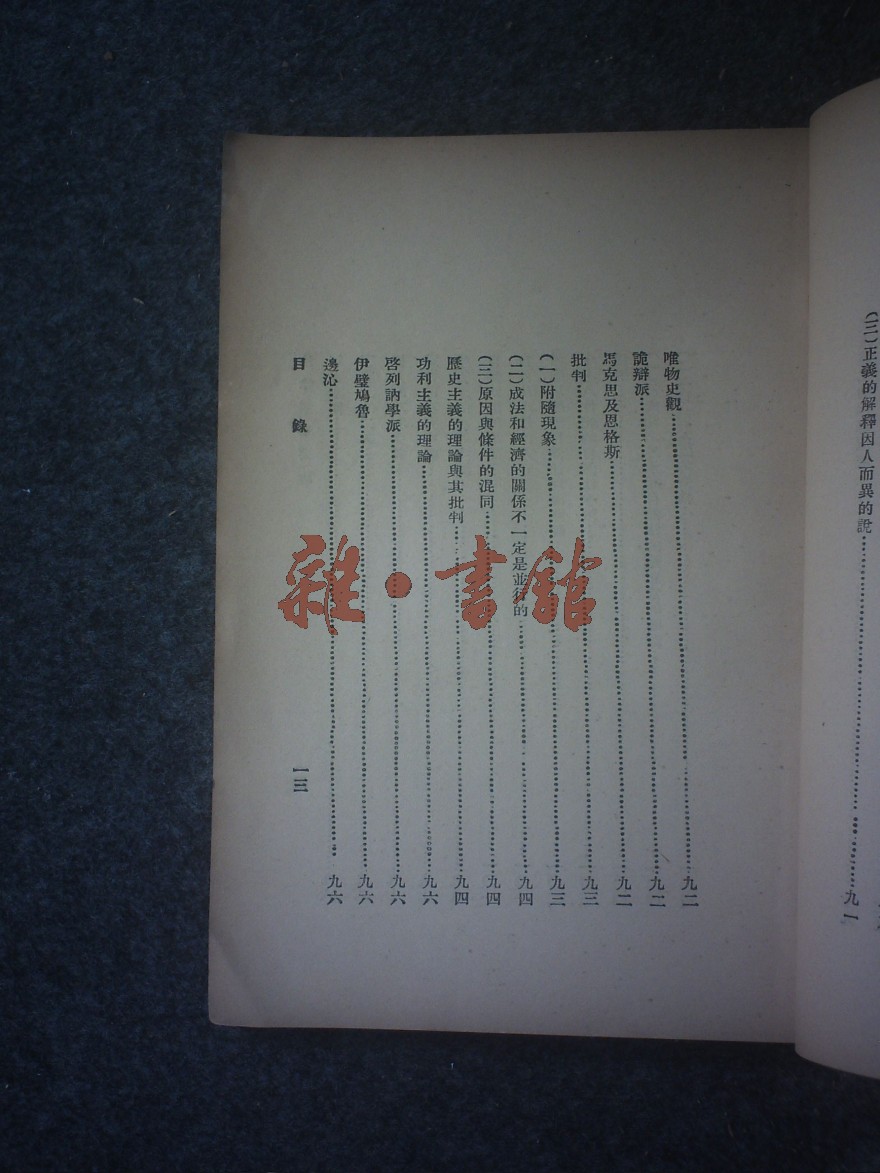 (三)正義的解釋因人而異的說……九一
唯物史觀……九二
詭辯派……九二
馬克思及恩格斯……九二
批判……九三
(一)附隨現象……九三
(二)成法和經濟的關係不一定是並行的……九四
(三)原因與條件的混同……九四
歷史主義的理論與其批判……九四
功利主義的理論……九六
啓列訥學派……九六
伊壁鳩魯……九六
邊沁……九六
目錄 一三
雜·書館